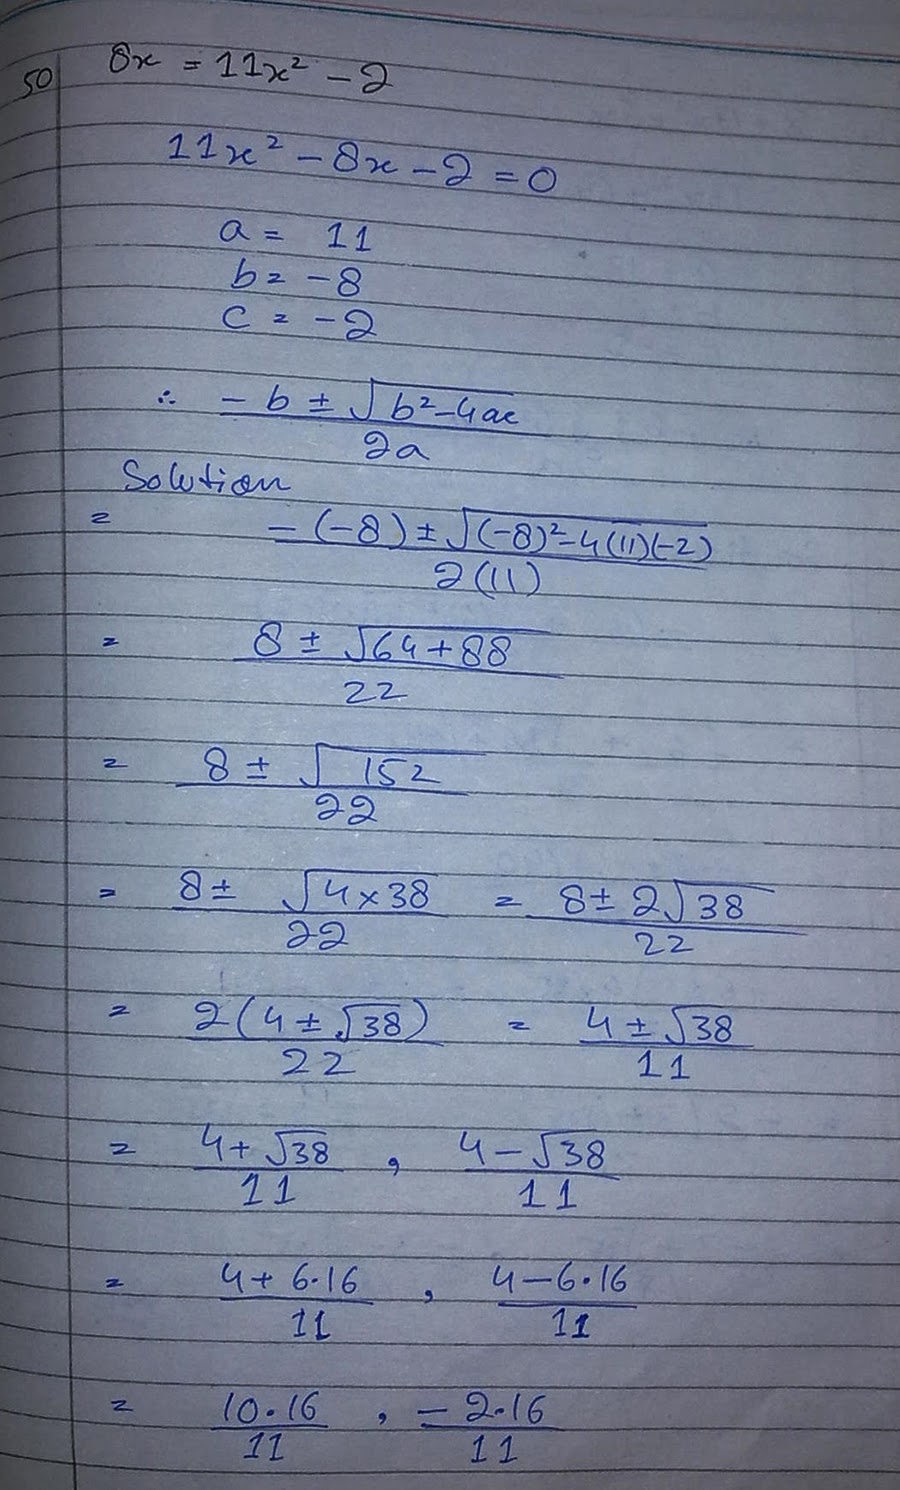 50 8x = 11x² - 2
11x² - 8x - 2 = 0
a = 11
b = -8
c = -2
∴ -b ± √b²-4ac / 2a
Solution
= -(-8) ± √(-8)²-4(11)(-2) / 2(11)
= 8 ± √64+88 / 22
= 8 ± √152 / 22
= 8 ± √4×38 / 22 = 8 ± 2√38 / 22
= 2(4 ± √38) / 22 = 4 ± √38 / 11
= 4 + √38 / 11 , 4 - √38 / 11
= 4 + 6.16 / 11 , 4 - 6.16 / 11
= 10.16 / 11 , -2.16 / 11